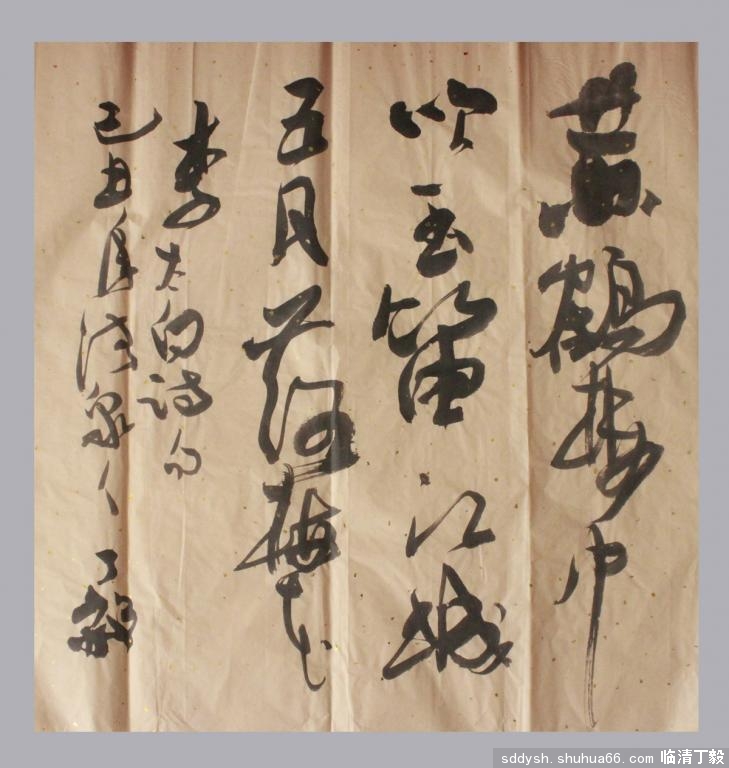 黄鹤楼中
吹玉笛江城
五月落梅花
李太白诗句
己丑年清泉人丁毅
sddysh.shuhua66.com 临清丁毅